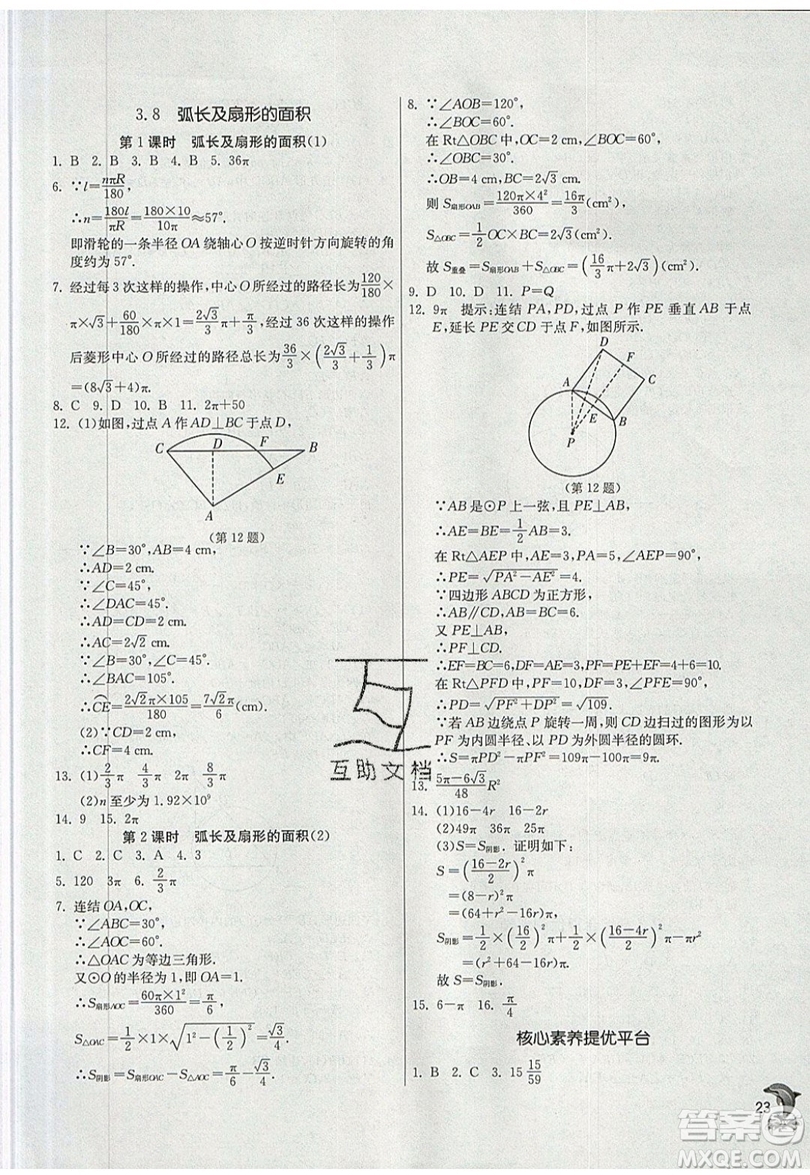 3.8 弧长及扇形的面积
第1课时 弧长及扇形的面积(1)
1. B 2. B 3. B 4. B 5. 36π
6. ∵l=nπR/180,
∴n=180l/πR=180×10/10π≈57°.
即滑轮的一条半径 OA 绕轴心 O 按逆时针方向旋转的角
度约为 57°.
7. 经过每 3 次这样的操作,中心 O 所经过的路径长为120/180×
π×√3+60/180×π×1=2√3/3π+π/3,经过 36 次这样的操作
后菱形中心 O 所经过的路径总长为36/3×(2√3/3+1/3)π
=(8√3+4)π.
8. C 9. D 10. B 11. 2π+50
12. (1)如图,过点 A 作 AD⊥BC 于点 D,
C D F B
E
A
(第12题)
∵∠B=30°,AB=4 cm,
∴AD=2 cm.
∴∠DAC=45°.
∴AD=CD=2 cm.
∴AC=2√2 cm.
∴∠BAC=105°.
∴⌒CE=2√2π×105/180=7√2π/6(cm).
(2)∵CD=2 cm,
∴CF=4 cm.
13. (1)2/3π 2π 8/3π
(2)n 至少为 1.92×10⁹
14. 9 15. 2π
第2课时 弧长及扇形的面积(2)
1. C 2. C 3. A 4. 3
5. 120 3π 6. 2/3π
7. 连结 OA,OC,
∵∠ABC=30°,
∴∠AOC=60°.
∴△OAC 为等边三角形.
又⊙O 的半径为 1,即 OA=1.
∴S扇形AOC=60π×1²/360=π/6,
S△OAC=1/2×1×√(1²-(1/2)²)=√3/4.
∴S阴影=S扇形AOC-S△OAC=π/6-√3/4.
8. ∵∠AOB=120°,
∴∠BOC=60°.
在 Rt△OBC 中,OC=2 cm,∠BOC=60°,
∴∠OBC=30°.
∴OB=4 cm,BC=2√3 cm.
则 S扇形OAB=120π×4²/360=16π/3(cm²),
S△OBC=1/2OC×BC=2√3(cm²).
故 S重叠=S扇形OAB+S△OBC=(16/3π+2√3)(cm²).
9. D 10. D 11. P=Q
12. 9π 提示:连结 PA,PD,过点 P 作 PE 垂直 AB 于点
E,延长 PE 交 CD 于点 F,如图所示.
D
F
A C
E
B
P
(第12题)
∵AB 是⊙P 上一弦,且 PE⊥AB,
∴AE=BE=1/2AB=3.
在 Rt△AEP 中,AE=3,PA=5,∠AEP=90°,
∴PE=√(PA²-AE²)=4.
∵四边形 ABCD 为正方形,
∴AB∥CD,AB=BC=6.
又 PE⊥AB,
∴PF⊥CD.
∴EF=BC=6,DF=AE=3,PF=PE+EF=4+6=10.
在 Rt△PFD 中,PF=10,DF=3,∠PFD=90°,
∴PD=√(PF²+DP²)=√109.
∵若 AB 边绕点 P 旋转一周,则 CD 边扫过的图形为以
PF 为内圆半径、以 PD 为外圆半径的圆环.
∴S=π·PD²-π·PF²=109π-100π=9π.
13. (5π-6√3)/48 R²
14. (1)16-4r 16-r 16-2r
(2)49π 36π 100π
(3)S=S阴影. 证明如下:
S=((16-2r)/2)²π
=(8-r)²π
=(64+r²-16r)π,
S阴影=1/2×(16/2)²π+1/2×((16-4r)/2)²π
=(64-16r+r²)π.
故 S=S阴影.
15. 6-π 16. π/4
核心素养提优平台
1. B 2. C 3. 15 15/59
23
互助文档
答案圈
MXQE.COM